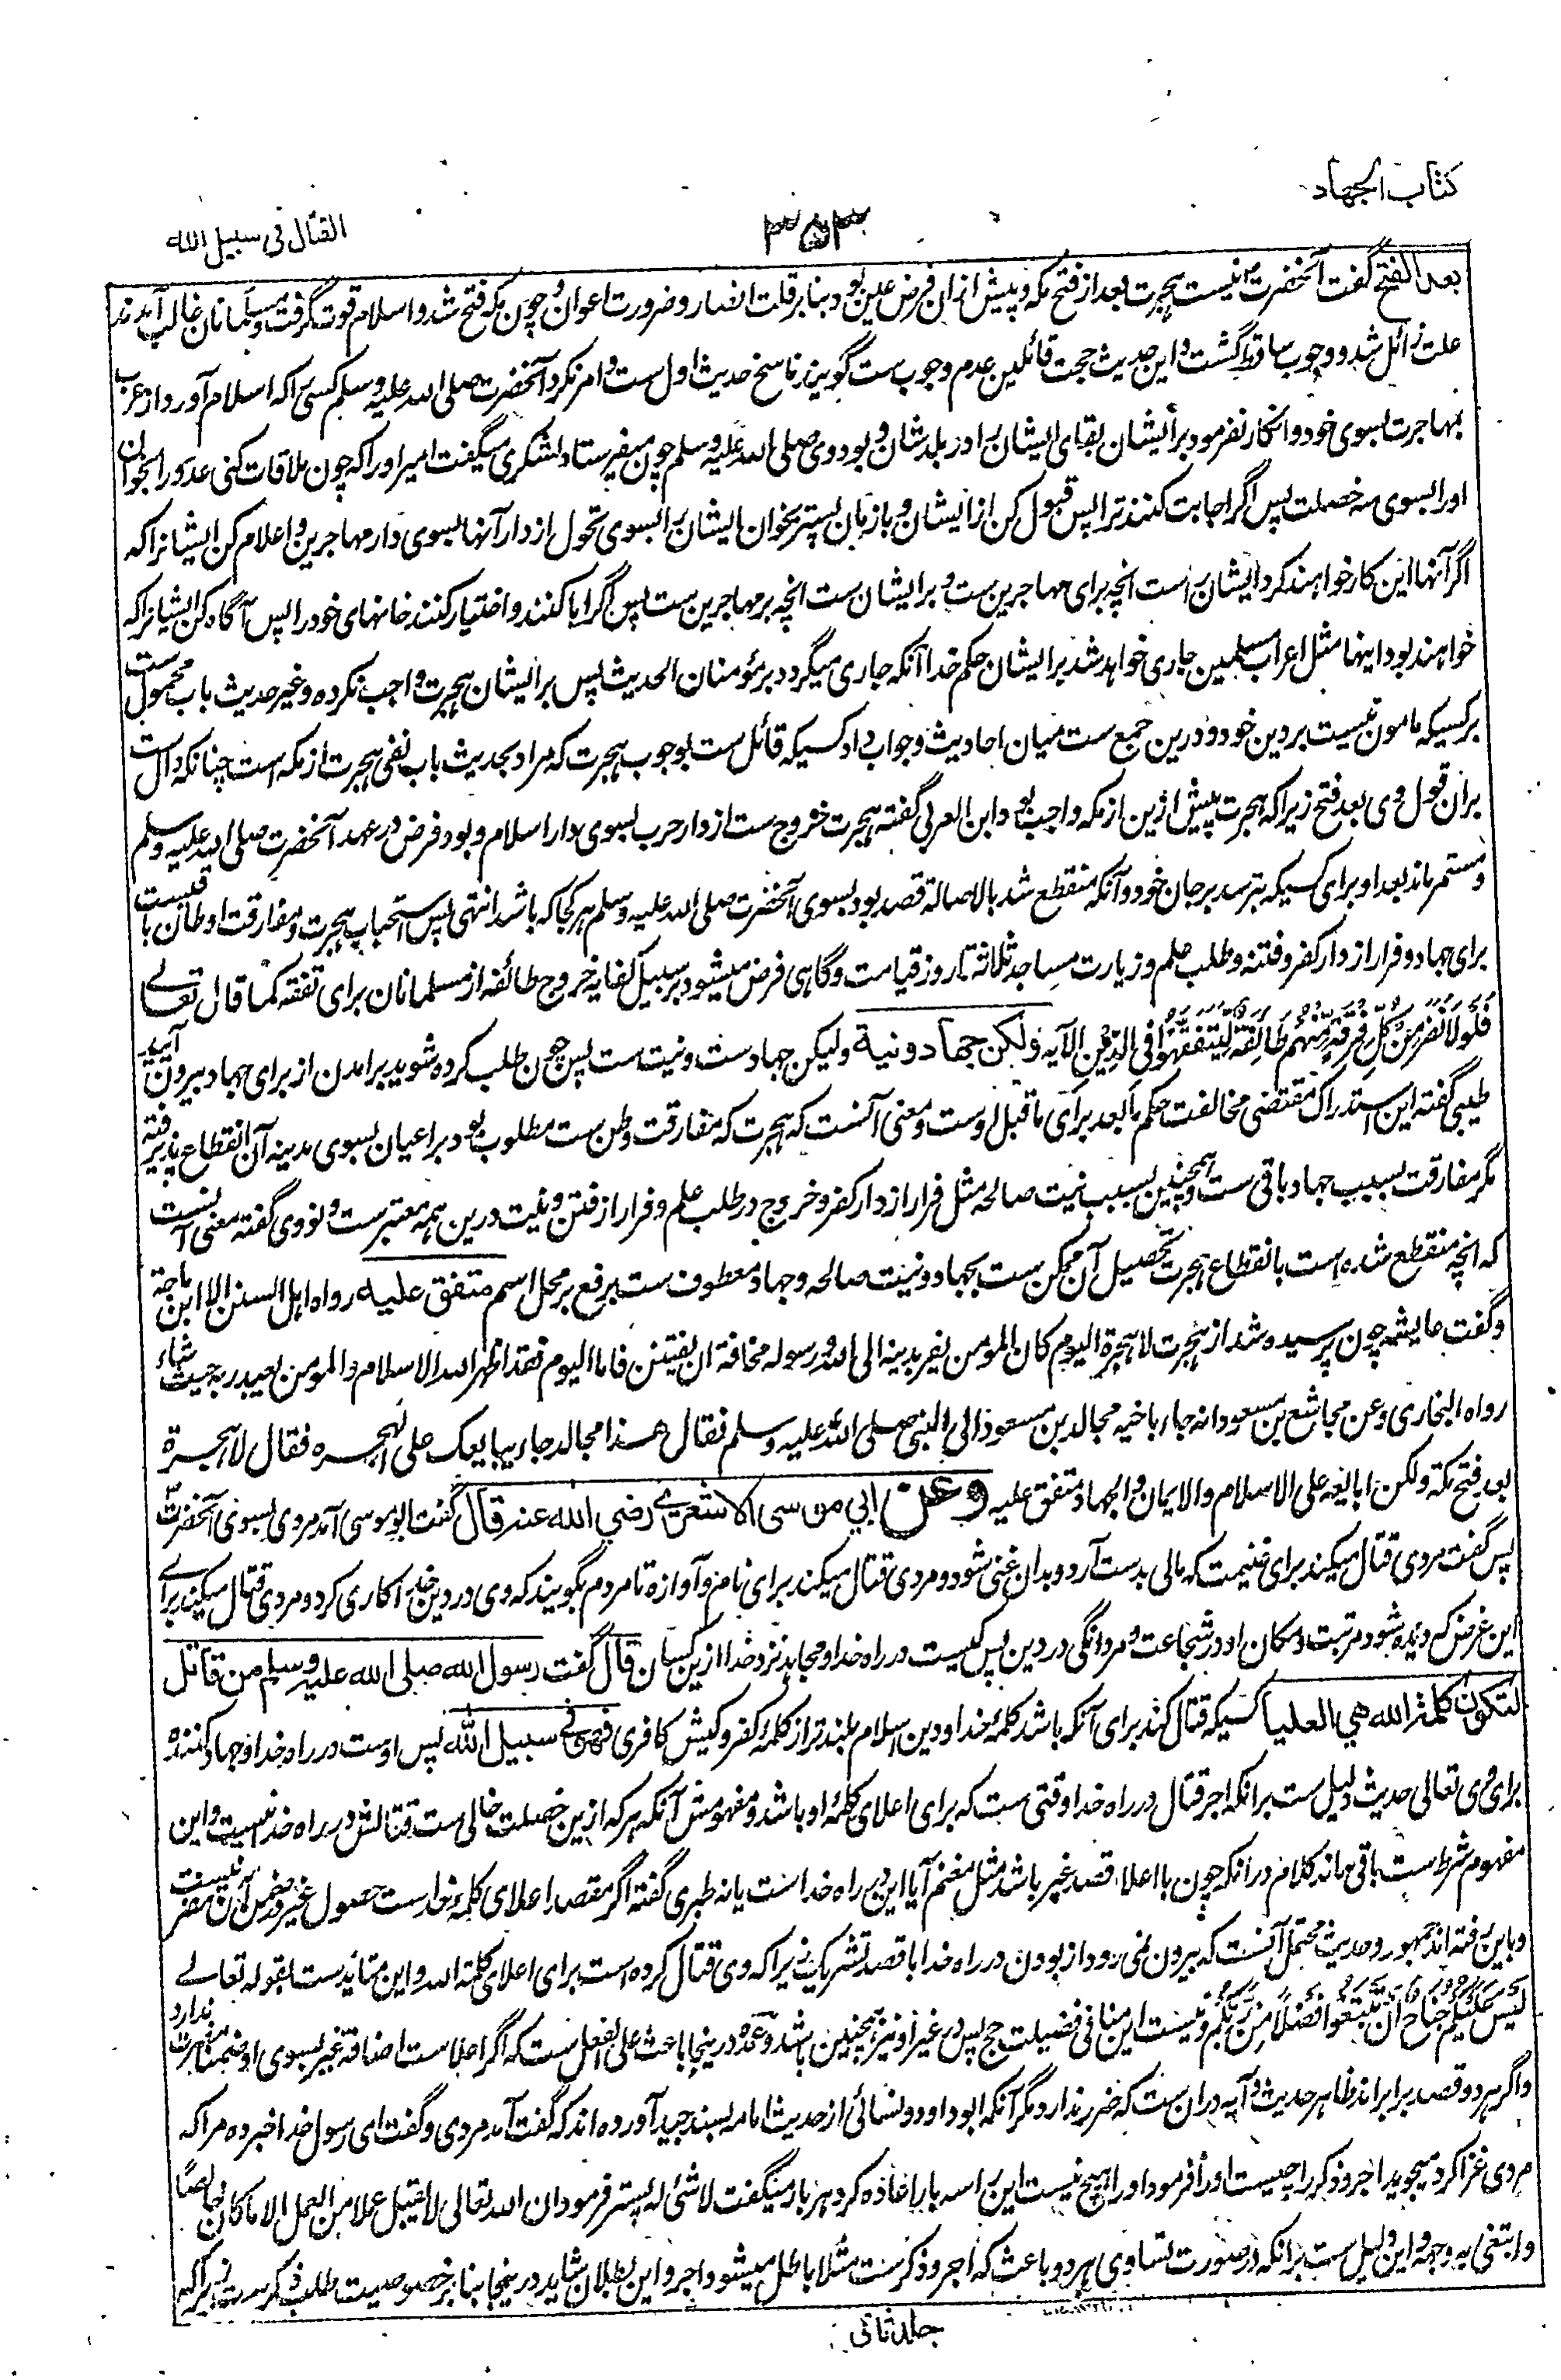 کتاب الجهاد
۳۵۳
القتال فی سبیل الله
بعد الفتح گفت آنحضرت نیست هجرت بعد از فتح مکه و پیش ازان فرض عین بود بنابر قلت انصار و ضرورت اعوان و چون مکه فتح شد و اسلام قوت گرفت و مسلمانان غالب آمدند
علت زائل شد و وجوب ساقط گشت و این حدیث حجت قائلین عدم وجوب ست گویند ناسخ حدیث اول ست و امر نکرد آنحضرت صلی الله علیه وسلم کسی را که اسلام آورد از عرب
بهاجرت بسوی خود و انکار نفرمود بر ایشان بقای ایشان را در بلد شان و بود وی صلی الله علیه وسلم چون میفرستاد لشکری میگفت امیر او را که چون ملاقات کنی عدو را بخوان
او را بسوی سه خصلت پس اگر اجابت کنند ترا پس قبول کن از ایشان و باز مان پستر بخوان ایشان را بسوی تحول از دار آنها بسوی دار مهاجرین و اعلام کن ایشانرا که
اگر آنها این کار خواهند کرد ایشان راست انچه برای مهاجرین ست و بر ایشان ست انچه بر مهاجرین ست پس اگر ابا کنند و اختیار کنند خانهای خود را پس آگاه کن ایشانرا که
خواهند بود اینها مثل اعراب مسلمین جاری خواهد شد بر ایشان حکم خدا آنکه جاری میگردد بر مؤمنان الحدیث پس بر ایشان هجرت واجب نکرده و غیر حدیث باب محمول ست
بر کسیکه مامون نیست بر دین خود و درین جمع ست میان احادیث و جواب داد کسیکه قائل ست بوجوب هجرت که مراد بحدیث باب نفی هجرت از مکه است چنانکه دال ست
بران قول وی بعد فتح زیرا که هجرت پیش ازین از مکه واجب بود و ابن العربی گفته هجرت خروج ست از دار حرب بسوی دار اسلام و بود فرض در عهد آنحضرت صلی الله علیه وسلم
و مستمر ماند بعد او برای کسیکه بترسد بر جان خود و آنکه منقطع شد بالاصالة قصد بود بسوی آنحضرت صلی الله علیه وسلم هر کجا که باشد انتهی پس استحباب هجرت و مفارقت اوطان باقیست
برای جهاد و فرار از دار کفر و فتنه و طلب علم و زیارت مساجد ثلاثه تا روز قیامت و گاهی فرض میشود بر سبیل کفایه خروج طائفه از مسلمانان برای تفقه کما قال تعالے
فَلَوْلَا نَفَرَ مِنْ كُلِّ فِرْقَةٍ مِنْهُمْ طَائِفَةٌ لِيَتَفَقَّهُوا فِي الدِّينِ الآیه ولکن جهاد ونیة ولیکن جهادست و نیت ست پس چون طلب کرده شوید برامدن از برای جهاد بیرون آئید
طیبی گفته این استدراک مقتضی مخالفت حکم مابعد برای ماقبل اوست و معنی آنست که هجرت که مفارقت وطن ست مطلوب بود بر اعیان بسوی مدینه آن انقطاع پذیرفته
مگر مفارقت بسبب جهاد باقی ست و همچنین بسبب نیت صالحه مثل فرار از دار کفر و خروج در طلب علم و فرار از فتن و نیت درین همه معتبر ست و نووی گفته معنی آنست
که انچه منقطع شده است بانقطاع هجرت تحصیل آن ممکن ست بجهاد و نیت صالحه و جهاد معطوف ست برفع بر محل اسم متفق علیه رواه اهل السنن الا ابن ماجة
و گفت عایشه چون پرسیده شد از هجرت لا هجرة الیوم کان المومن یفر بدینه الی الله و رسوله مخافة ان یفتتن فاما الیوم فقد اظهر الله الاسلام والمومن یعبد ربه حیث شاء
رواه البخاری وعن مجاشع بن مسعود انه جاء باخیه مجالد بن مسعود الی النبی صلی الله علیه وسلم فقال هذا مجالد جاء یبایعک علی الهجره فقال لا هجرة
بعد فتح مکة ولکن ابایعه علی الاسلام والایمان والجهاد متفق علیه وعن ابي موسی الاشعری رضی الله عنه قال گفت ابوموسی آمد مردی بسوی آنحضرت
پس گفت مردی قتال میکند برای غنیمت که مالی بدست آرد و بدان غنی شود و مردی قتال میکند برای نام و آوازه تا مردم بگویند که وی در دین خدا کاری کرد و مردی قتال میکند برای
این غرض که دیده شود مرتبت و مکان او در شجاعت و مردانگی در دین پس کیست در راه خدا و مجاهد نزد خدا ازین کسان قال گفت رسول الله صلی الله علیه وسلم من قاتل
لتکون کلمة الله هی العلیا کسیکه قتال کند برای آنکه باشد کلمهٔ خدا و دین اسلام بلند تر از کلمهٔ کفر و کیش کافری فهو فی سبیل الله پس اوست در راه خدا و جهاد کننده
برای وی تعالی حدیث دلیل ست برانکه اجر قتال در راه خدا وقتی ست که برای اعلای کلمهٔ او باشد و مفهومش آنکه هر که ازین خصلت خالی ست قتالش در راه خدا نیست و این
مفهوم شرط ست باقی ماند کلام درانکه چون با اعلا قصد غیر باشد مثل مغنم آیا این در راه خداست یا نه طبری گفته اگر مقصد اعلای کلمهٔ خداست حصول غیر در ضمن آن مضر نیست
و باین رفته اند جمهور و حدیث محتمل آنست که بیرون نمی رود از بودن در راه خدا با قصد تشریک زیرا که وی قتال کرده است برای اعلای کلمة الله و این متاید ست بقوله تعالے
لَيْسَ عَلَيْكُمْ جُنَاحٌ أَنْ تَبْتَغُوا فَضْلًا مِنْ رَبِّكُمْ و نیست این منافی فضیلت حج پس در غیر او نیز همچنین باشد و عمده درینجا باعث علی الفعل ست که اگر اعلاست اضافهٔ غیر بسوی او ضمنا مضرت ندارد
و اگر هر دو قصد برابر اند ظاهر حدیث و آیه دران ست که ضرر ندارد مگر آنکه ابو داود و نسائی از حدیث امامه بسند جید آورده اند که گفت آمد مردی و گفت ای رسول خدا خبر ده مرا که
مردی غزا کرد میجوید اجر و ذکر را چیست او را فرمود او را هیچ نیست این را سه بار اعاده کرد هر بار میگفت لا شئ له پستر فرمود ان الله تعالی لا یقبل عملا من العمل الا ما کان خالصًا
وابتغی به وجهه و این دلیل ست برانکه در صورت تساوی هر دو باعث که اجر و ذکر ست مثلا باطل میشود اجر و این بطلان شاید درینجا بنابر خصوصیت طلب ذکر ست زیراکه
جلد ثانی